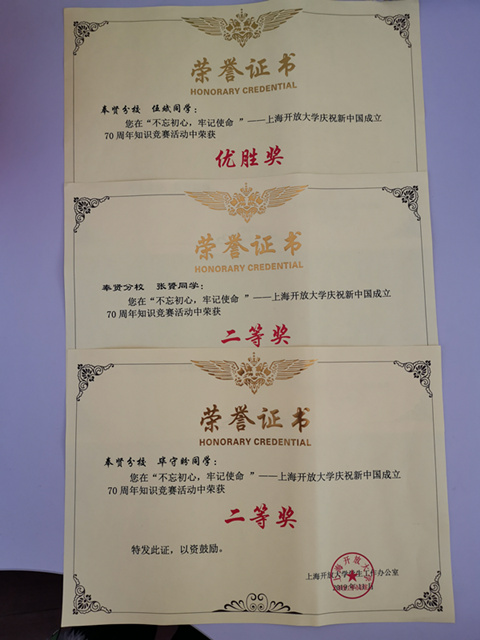 荣誉证书
HONORARY CREDENTIAL
奉贤分校 伍斌同学：
您在“不忘初心，牢记使命 ”——上海开放大学庆祝新中国成立
70 周年知识竞赛活动中荣获
优胜奖
荣誉证书
HONORARY CREDENTIAL
奉贤分校 张贤同学：
您在“不忘初心，牢记使命 ”——上海开放大学庆祝新中国成立
70 周年知识竞赛活动中荣获
二等奖
荣誉证书
HONORARY CREDENTIAL
奉贤分校 毕守盼同学：
您在“不忘初心，牢记使命 ”——上海开放大学庆祝新中国成立
70 周年知识竞赛活动中荣获
二等奖
特发此证，以资鼓励。
上海开放大学学生工作办公室